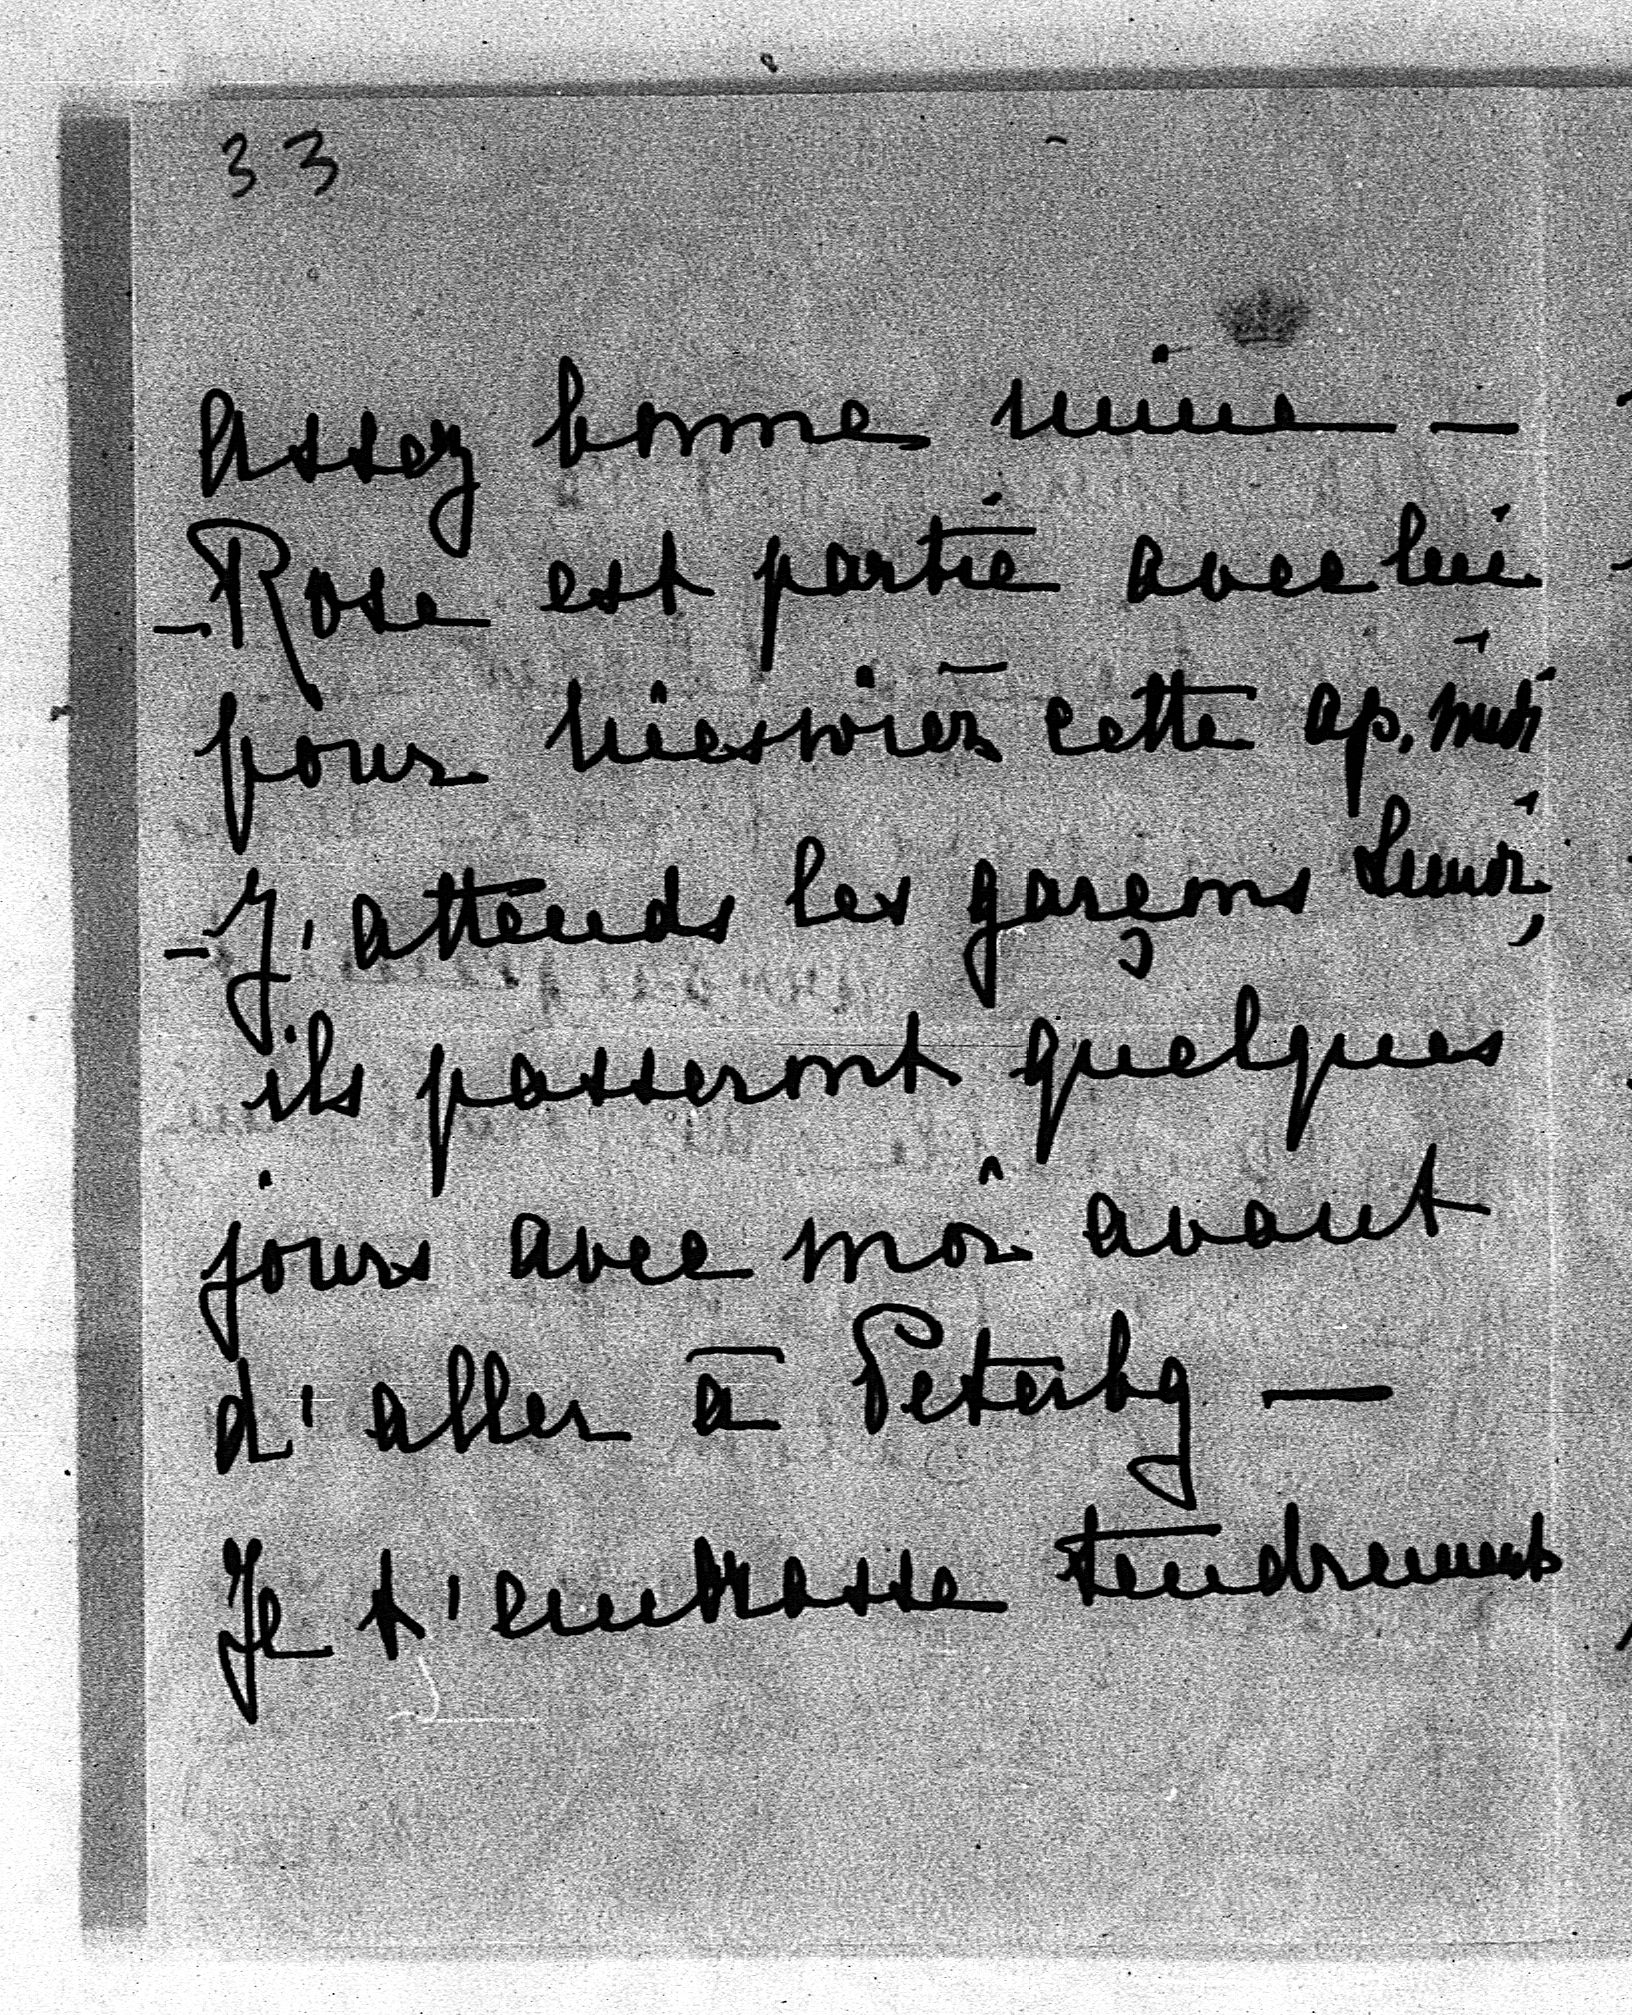 33
assez bonne mine —
– Rose est partie avec lui
pour cette ap. midi
– J'attends les garçons
ils passeront quelques
jours avec moi avant
d'aller à Petersbg —
Je t'embrasse tendrement